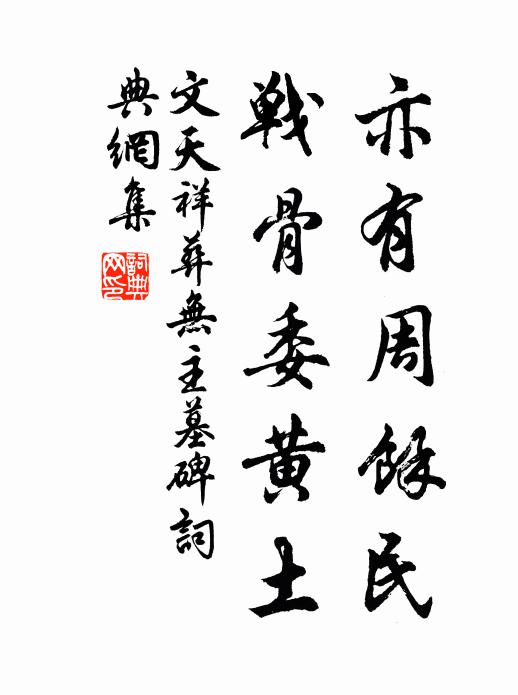 亦有周餘民
戰骨委黄土
文天祥葬無主墓碑詞
典網集
詞典網印